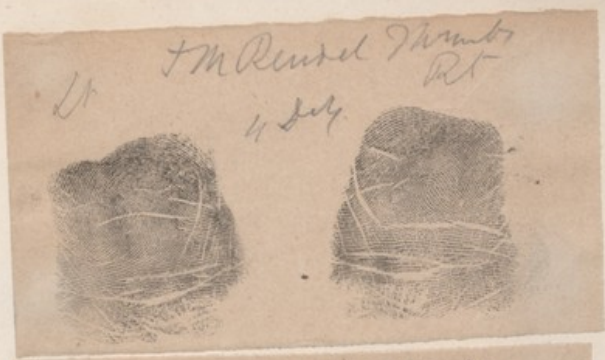 J M Rendel Thumbs
Lt Rt
4 Dely